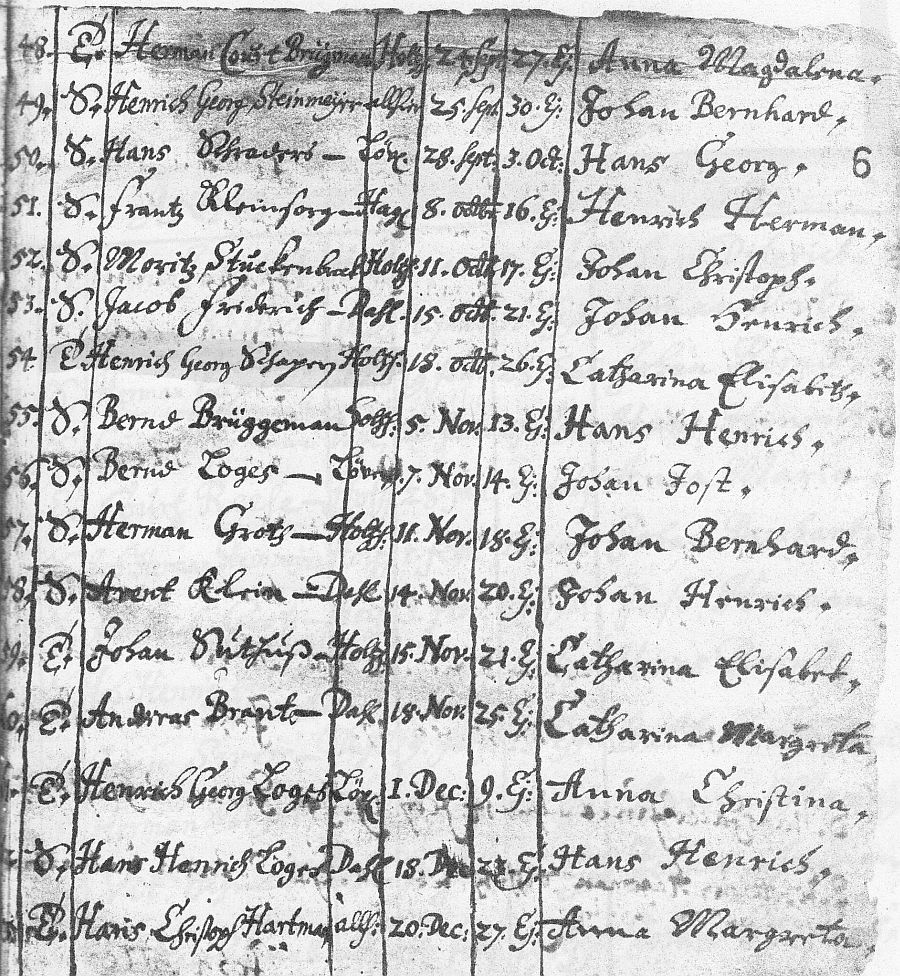 48. T. Herman Brügman Holtz. 24. Sept. 27. Ej. Anna Magdalena.
49. S. Henrich Georg Steinmejer 25. sept. 30. Ej. Johan Bernhard.
50. S. Hans Schraders – 28. sept. 3. Oct: Hans Georg. 6
51. S. Frantz Kleinsorg – Hag. 8. octb. 16. Ej: Henrich Herman.
52. S. Moritz Stuckenbrok Holtz. 11. Octb. 17. Ej: Johan Christoph.
53. S. Jacob Friderich – Dahl. 15. octb. 21. Ej: Johan Henrich.
54. T. Henrich Georg Schapers Holtzh. 18. octb. 26. Ej: Catharina Elisabeth.
55. S. Bernd Brüggeman holtzh. 5. Nov. 13. Ej: Hans Henrich.
56. S. Bernd Loges – 7. Nov. 14. Ej: Johan Jost.
57. S. Herman Grote – Holtzh. 11. Nov. 18. Ej: Johan Bernhard.
58. S. Arent Klein – Dahl 14. Nov. 20. Ej: Johan Henrich.
59. T. Johan Suthuß – Holtzh 15. Nov. 21. Ej: Catharina Elisabet.
60. T. Andreas Brant – Dahl. 18. Nov. 25. Ej: Catharina Margreta
T. Henrich Georg Loges 1. Dec: 9. Ej: Anna Christina.
S. Hans Henrich Loges Dahl 18. Dec Ej: Hans Henrich.
T. Hans Christoph Hartman allh: 20. Dec: 27. Ej: Anna Margreta.